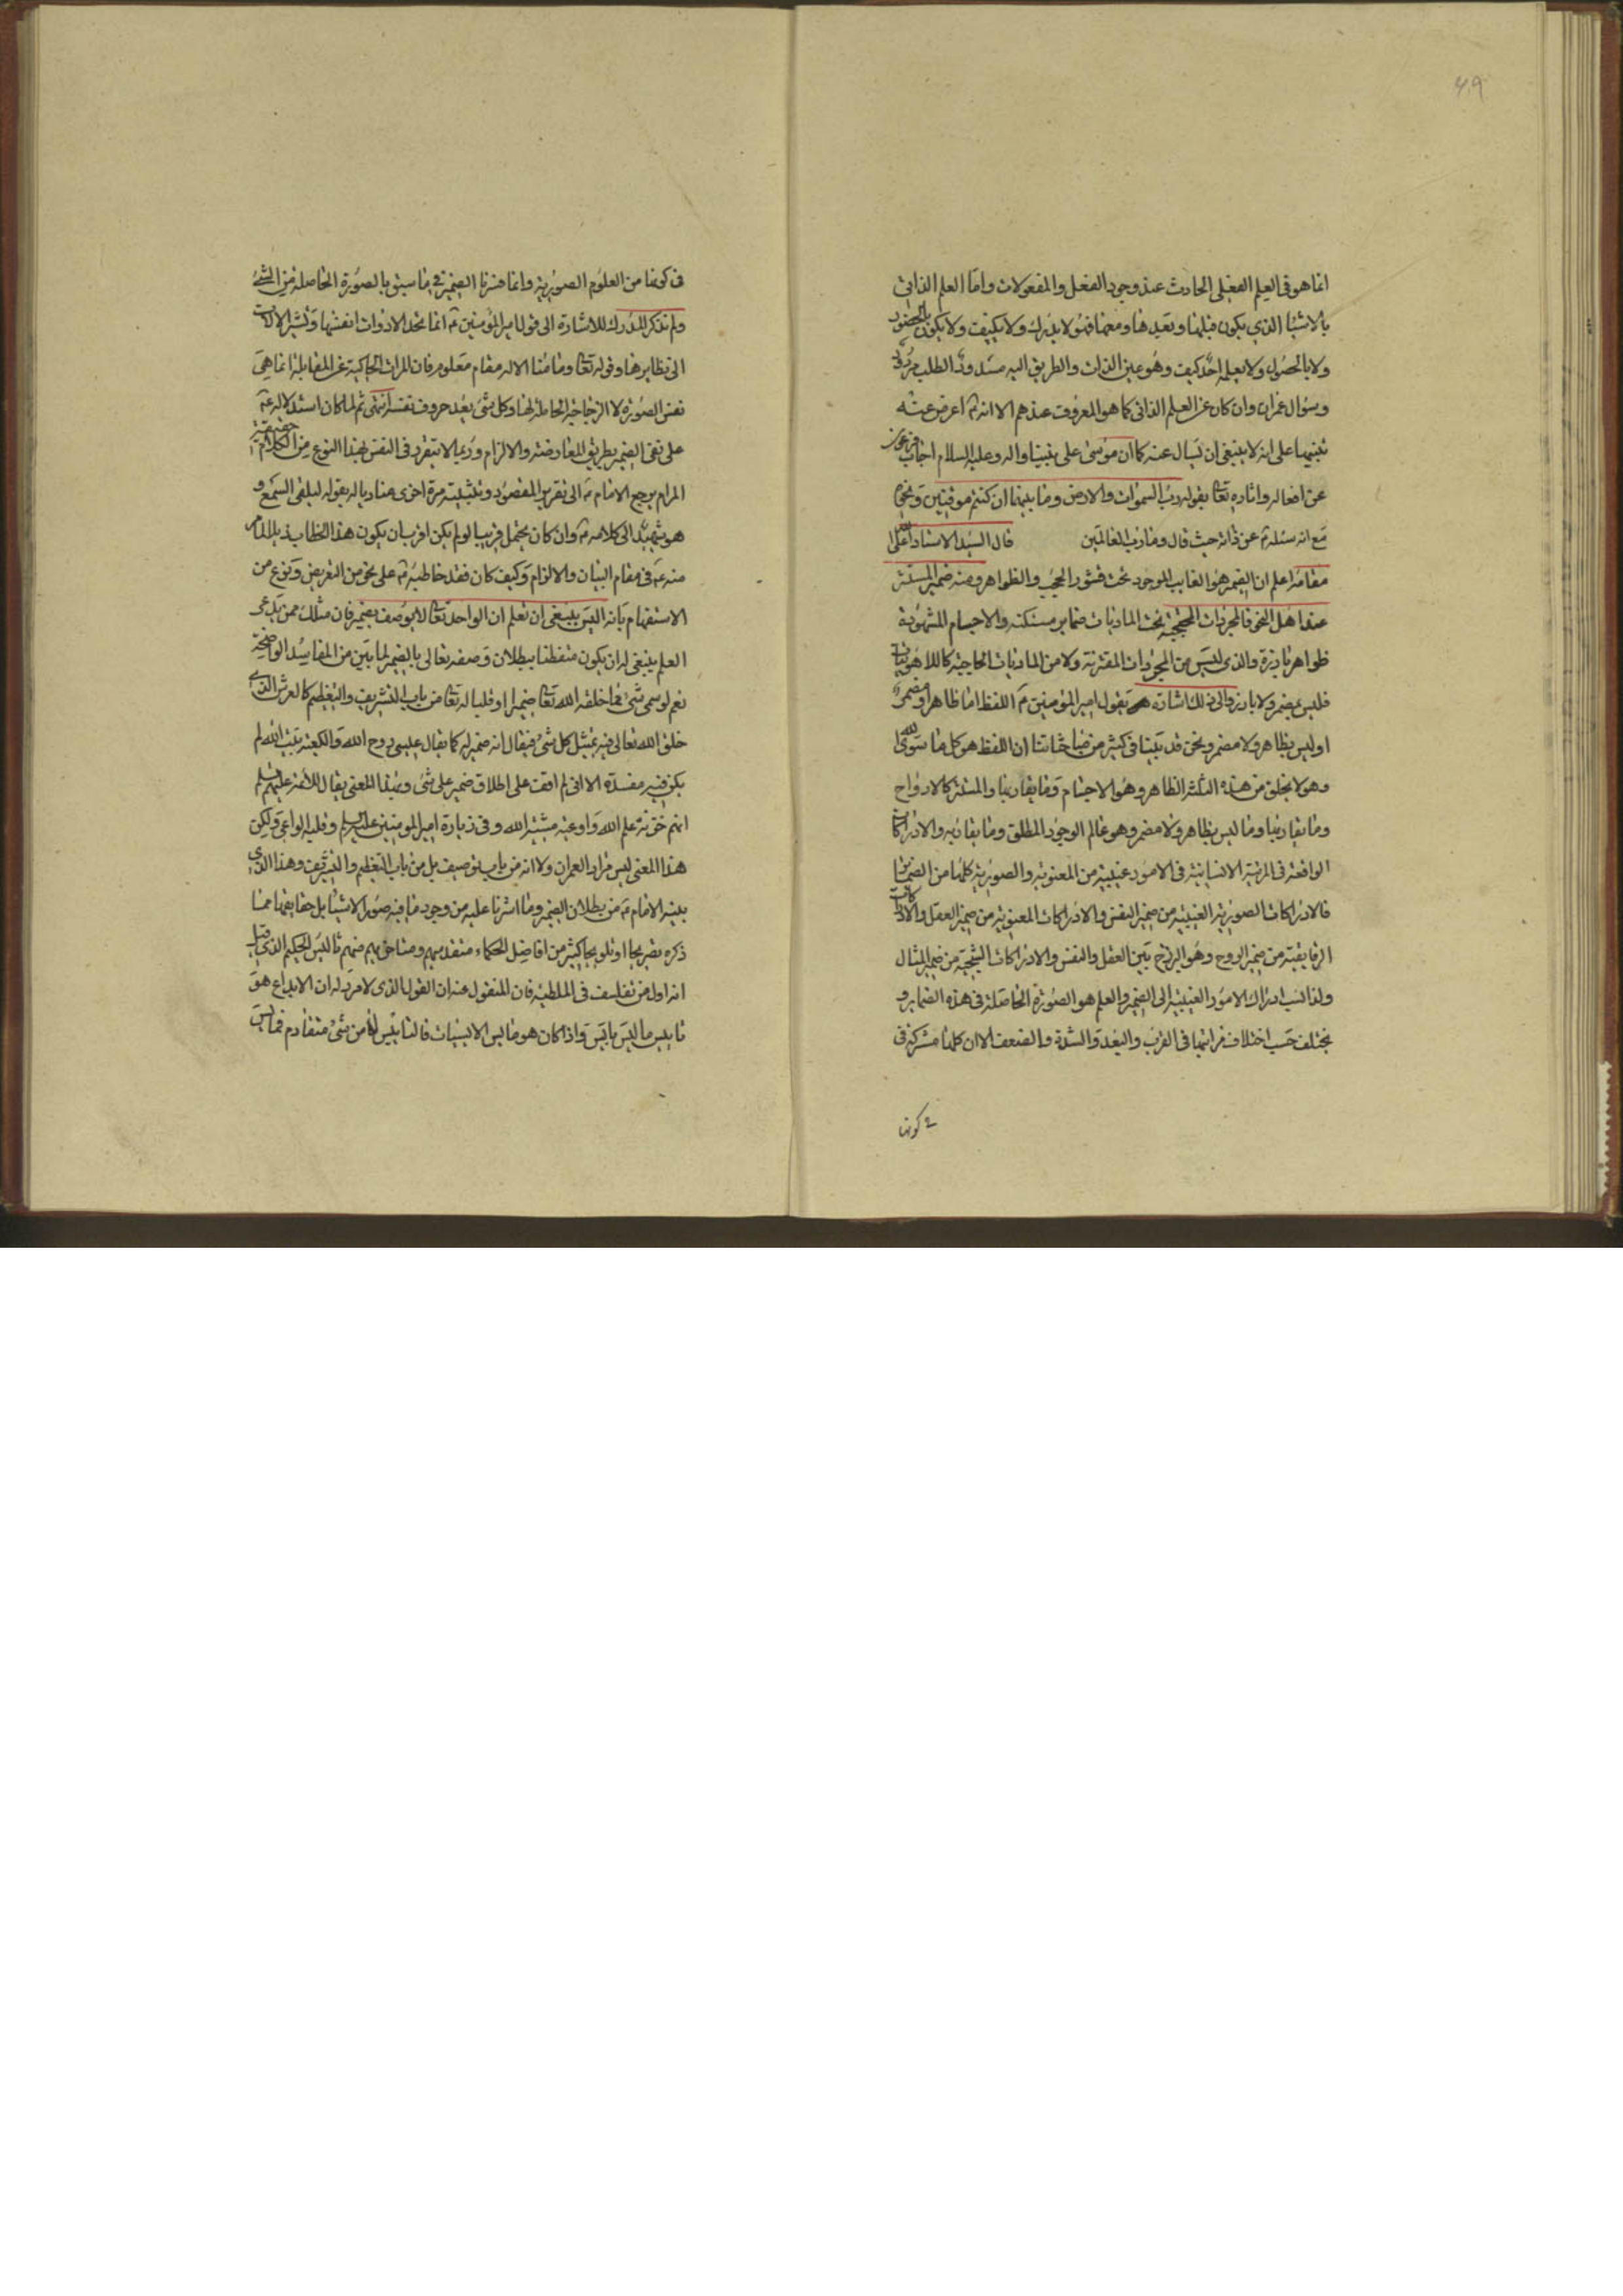 ۴۹
انما هو فی العلم الفعلی الحادث عند وجود الفعل والمفعولات واما العلم الذاتی
بالاشیا الذی یکون قبلها وبعدها ومعها فهو لا یدرک ولا یکیف ولا یکون بالحضور
ولا بالحصول ولا یعلم احد کیف وهو عین الذات والطریق الیه مسدود والطلب مردود
وسؤال عمران وان کان عن العلم الذاتی کما هو المعروف عندهم الا انه ع اعرض عنه
تنبیها علی انه لا ینبغی ان یسال عنه کما ان موسی علی نبینا واله وعلیه السلام اجاب فرعون
عن افعاله واثاره تعا بقوله رب السموات والارض وما بینهما ان کنتم موقنین
مع انه سئله عن ذاته حیث قال وما رب العالمین قال السید الاستاد اعلی الله
مقامه اعلم ان الضمیر هو الغایب الموجود تحت قشور الحجب والظواهر ومنه ضمیر المستتر
عند اهل النحو فالمجردات المحتجبة تحت المادیات ضمایر مستکنه والاجسام المشهودة
ظواهر بارزة والذی لیس من المجردات المقترنة ولا من المادیات کاللاهوتیات
فلیس بمضمر ولا بارز والی ذلک اشارة بقول امیر المؤمنین ع اللفظ اما ظاهر او مضمر
او لیس بظاهر ولا مضمر ونحن قد بینا فی کثیر من مباحثاتنا ان اللفظ هو کل ما سوی الله
وهو لا یخلو من هذه الثلثة الظاهر وهو الاجسام وما یقاربها والمستتر کالارواح
وما یقاربها وما لیس بظاهر ولا مضمر وهو عالم الوجود المطلق وما یقاربه والادراکات
الواقعة فی المرتبة الانسانیة فی الامور غیبیة من المعنویة والصوریة کلها من الضمایر
فالادراکات الصوریة الغیبیة من ضمیر النفس والادراکات المعنویة من ضمیر العقل والادراکات
الرقایقیة من ضمیر الروح وهو البرزخ بین العقل والنفس والادراکات الشبحیة من ضمیر المثال
ولذا نسب ادراک الامور الغیبیة الی الضمیر والعلم هو الصورة الحاصلة فی هذه الضمایر و
یختلف حسب اختلاف مراتبها فی القرب والبعد والشدة والضعف الا ان کلها مشترکة فی
فی کونها
فی کونها من العلوم الصوریة وانما فسرنا الضمیر فی ما سبق بالصورة الحاصلة من الشئ
ولم نذکر المدرک للاشارة الی قول امیر المؤمنین ع انما تحد الادوات انفسها وتشیر الالات
الی نظایرها وقوله تعا وما منا الا له مقام معلوم فان المرات الحاکیة عن المقابل انما هی
نفس الصورة لا الزجاجة الحاملة لها وکل شئ بعد حروف نفسه انتهی ثم لما کان استدلاله ع
علی نفی الضمیر بطریق المعارضة والالزام وربما لا یتقرر فی النفس بهذا النوع من الکلام حقیقة
المرام یرجع الامام ع الی تقریر المقصود وتثبیته مرة اخری منادیا له بقوله لیلقی السمع و
هو شهید الی کلامه ع وان کان یحتمل قریبا لو لم یکن اقرب ان یکون هذا الخطاب
منه ع فی مقام البیان والالزام وکیف کان فقد خاطبه ع علی نحو من التعریض ونوع من
الاستفهام بانه الیس ینبغی ان تعلم ان الواحد تعا لا یوصف بضمیر فان مثلک ممن یدعی
العلم ینبغی له ان یکون متفطنا ببطلان وصفه تعالی بالضمیر لما بین من المفاسد الواضحة
نعم لو سمی شئ مما خلقه الله تعا ضمیرا او قلبا له تعا من باب التشریف والتعظیم کالعرش الذی
خلق الله تعالی فیه تمثیل کل شئ فیقال انه ضمیر له کما یقال عیسی روح الله والکعبة بیت الله لم
یکن فیه مفسدة الا انی لم اقف علی اطلاق ضمیر علی شئ وبهذا المعنی یقال للائمة علیهم السلم
انهم خزنة علم الله واوعیة مشیة الله وفی زیارة امیر المومنین علیه السلم وقلبه الواعی ولکن
هذا المعنی لیس مراد العمران ولا انه من باب توصیف بل من باب التعظیم والتشریف وهذا الذی
بینه الامام ع من بطلان الضمیر وما اشرنا علیه من وجود ما فیه صور الاشیا بل حقایقها مما
ذکره تصریحا او تلویحا کثیر من افاضل الحکماء متقدمیهم ومتاخریهم منهم ثالیس الحکیم الذی قیل
انه اول من تفلسف فی الملطیة فان المنقول عنه ان القول الذی لا مرد له ان الابداع هو
تاییس ما لیس بایس واذا کان هو مایس الایسیات فالتاییس لا من شئ متقادم